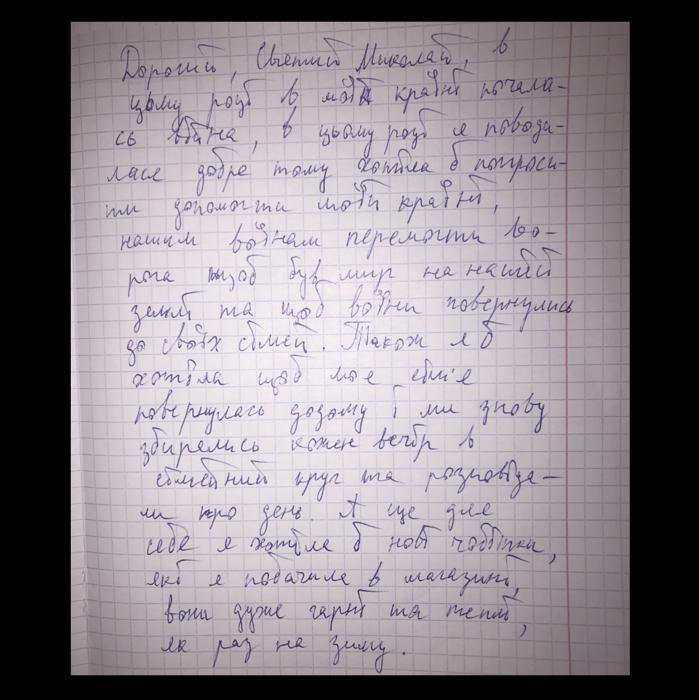 Дорогий, Святий Миколай, в
цьому році в моїй країні почала-
сь війна, в цьому році я поводи-
лася добре тому хотіла б попроси-
ти допомогти моїй країні,
нашим воїнам перемогти во-
рога щоб був мир на нашій
землі та щоб воїни повернулись
до своїх сімей. Також я б
хотіла щоб моя сім'я
повернулась додому і ми знову
збирались кожен вечір в
сімейний круг та розповіда-
ли про день. А ще для
себе я хотіла б нові чобітки,
які я побачила в магазині,
вони дуже гарні та теплі,
як раз на зиму.